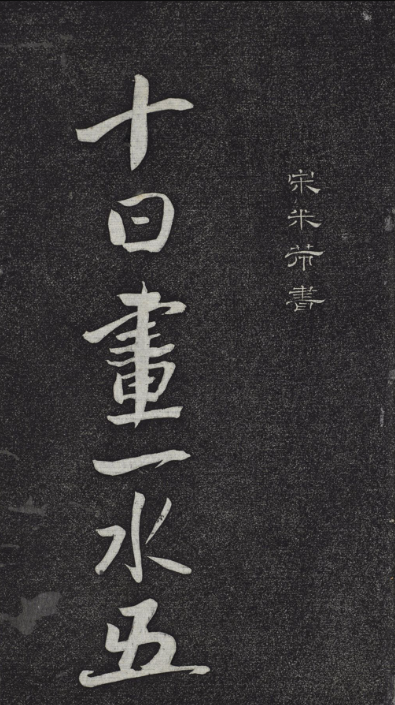 宋米芾書
十日畫一水五